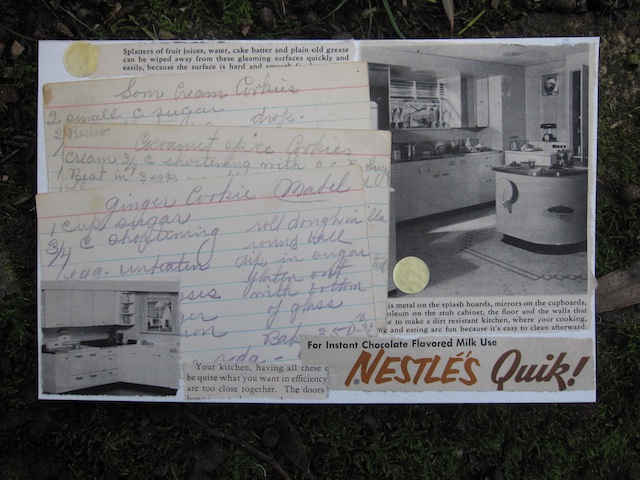 Splatters of fruit juices, water, cake batter and plain old grease
can be wiped away from these gleaming surfaces quickly and
easily, because the surface is hard and smooth
Sour Cream Cookies
2 small c sugar
Coconut spice Cookies
1 cream 3/4 C shortening with
1 Beat in 3 eggs
ginger Cookie Mabel
1 cup sugar
3/4 C shortening
1 egg - unbeaten
roll dough in
round ball
dip in sugar
flatten out
with bottom
of glass
Bake 350
soda
is metal on the splash boards, mirrors on the cupboards,
oleum on the stub cabinet, the floor and the walls that
e to make a dirt resistant kitchen, where your cooking,
ng and eating are fun because it's easy to clean afterward.
Your kitchen, having all these
be quite what you want in efficiency
are too close together. The doors
For Instant Chocolate Flavored Milk Use
® NESTLÉ'S Quik!